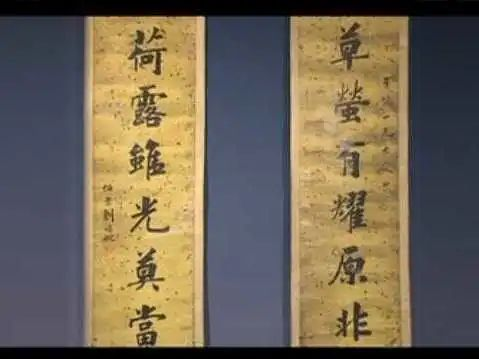 草螢有耀原非
荷露雖光莫當